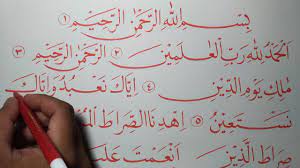 بِسْمِ اللهِ الرَّحْمٰنِ الرَّحِيْمِ ١
اَلْحَمْدُ لِلّٰهِ رَبِّ الْعٰلَمِيْنَ ٢ الرَّحْمٰنِ الرَّحِيْمِ ٣
مٰلِكِ يَوْمِ الدِّيْنِ ٤ اِيَّاكَ نَعْبُدُ وَاِيَّاكَ
نَسْتَعِيْنُ ٥ اِهْدِنَا الصِّرَاطَ
صِرَاطَ الَّذِيْنَ اَنْعَمْتَ